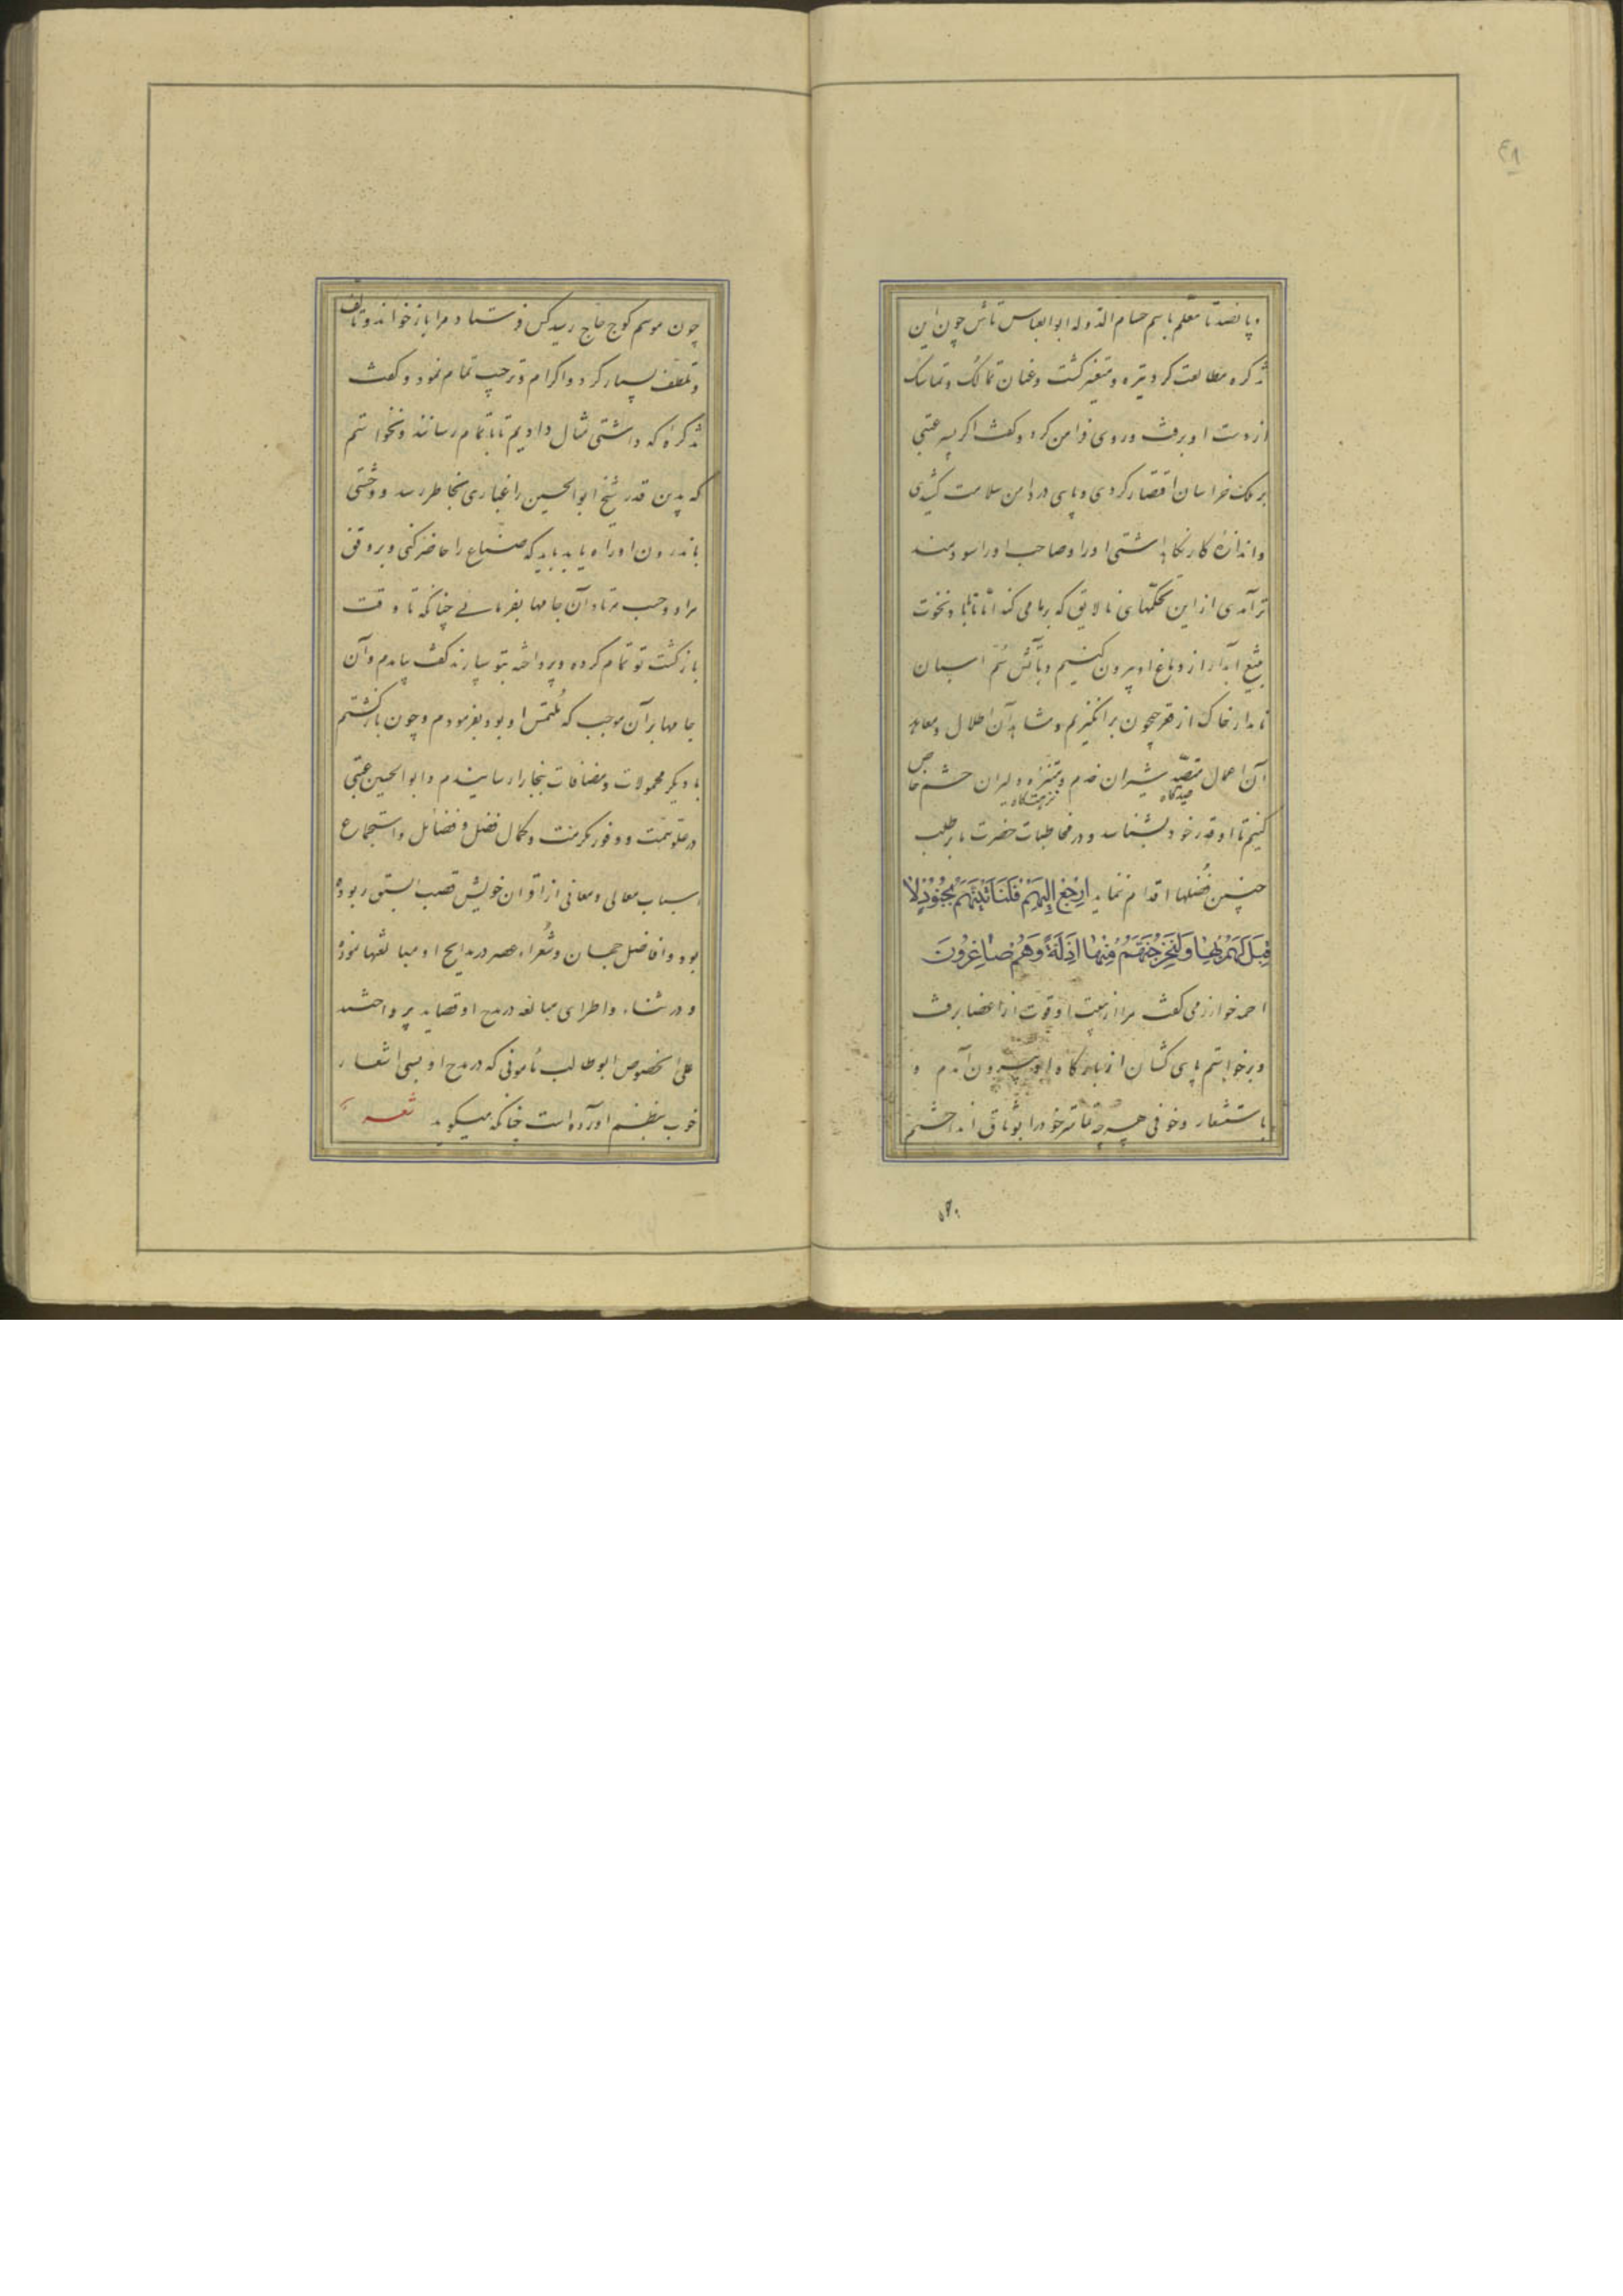 ۴۸
و پانصد تا معلم باسم حسام الدوله ابوالعباس تاش چون این
تذکره مطالعت کرد تیره و متغیر کشت و عنان تمالک و تماسک
از دست او برفت و روی فرا من کرد و کفت اکر پسر عتبی
بر ملک خراسان اقتصار کردی و پای در دامن سلامت کشیدی
و اندازه کار نکاه داشتی او را و صاحب او را سودمند
تر آمدی از این تحکمهای نالایق که بر ما می کند اما تا ما باد نخوت
بتیغ آبدار از دماغ او بیرون کنیم و بآتش سم اسبان
نامدار خاک از قعر جیحون برانکیزیم و مشاهد آن اطلال و معاهد
آن اعمال متصید شیران خدم و متنزه دلیران حشم خاص
صیدگاه
نزهتگاه
کنیم تا او قدر خود بشناسد و در مخاطبات حضرت ما بر طلب
چنین فضلها اقدام ننماید ارْجِعْ إِلَيْهِمْ فَلَنَأْتِيَنَّهُمْ بِجُنُودٍ لَا
قِبَلَ لَهُمْ بِهَا وَلَنُخْرِجَنَّهُمْ مِنْهَا أَذِلَّةً وَهُمْ صَاغِرُونَ
احمد خوارزمی کفت مرا از هیبت او قوت از اعضا برفت
و برخواستم پای کشان از بارکاه او بیرون آمدم و
با استشعار و خوفی هر چه تمامتر خود را بوثاق انداختم
چون موسم کوچ حاج رسید کس فرستاد و مرا باز خواند و تالف
و تلطف بسیار کرد و اکرام و ترحیب تمام نمود و کفت
تذکره که داشتی مثال دادیم تا باتمام رسانند و نخواستم
که بدین قدر شیخ ابوالحسین را غباری بخاطر رسد و وحشتی
باندرون او راه یابد باید که صناع را حاضر کنی و بر وفق
مراد و حسب مرتاد آن جامها بفرمائی چنانکه تا وقت
بازکشت تو تمام کرده و پرداخته بتو سپارند کفت بیامدم و آن
جامها بر آن موجب که ملتمس او بود بفرمودم و چون بازکشتم
با دیکر محمولات و مضافات ببخارا رسانیدم و ابوالحسین عتبی
در علو همت و وفور مکرمت و کمال فضل و فضایل و استجماع
اسباب معالی و معانی از اقران خویش قصب السبق ربوده
بود و افاضل جهان و شعراء عصر در مدایح او مبالغتها نموده
و در ثناء و اطرای مبالغه در مدح او قصاید پرداختند
علی الخصوص ابوطالب مأمونی که در مدح او بسی اشعار
خوب بنظم آورده است چنانکه میکوید شعر